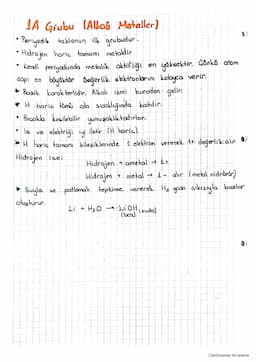 1A Grubu (Alkali Metaller)
• Periyodik tablonun ilk grubudur.
• Hidrojen hariç tamamı metaldir
• Kendi periyodunda metalik aktifliği en yüksektir. Çünkü atom
çapı en büyüktür. Değerlik elektronlarını kolayca verir.
• Bazik karakterlidir. Alkali ismi buradan gelir.
• H hariç tümü oda sıcaklığında katıdır.
• Bıçakla kesilebilir yumuşaklıktadırlar.
• Isı ve elektriği iyi iletir (H hariç)
H hariç tamamı bileşiklerinde 1 elektron vererek 1+ değerlik alır
Hidrojen ise;
Hidrojen + ametal → 1+
Hidrojen + metal → 1- alır (metal hidrürür)
Suyla ve patlamalı tepkime vererek H₂ gazı çıkışıyla bazlar
oluşturur.
Li + H₂O → LiOH (suda)
(baz)
CamScanner ile tarandı